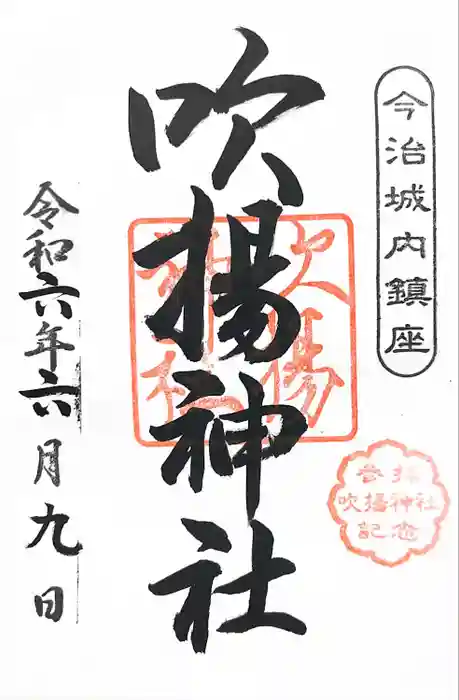 今治城内鎮座
吹揚神社
吹揚
神社
令和六年六月九日
参拝
吹揚神社
記念